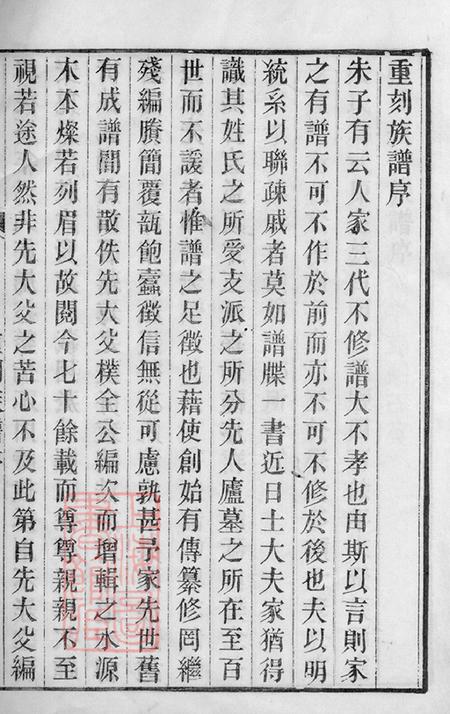 重刻族譜序
朱子有云人家三代不修譜大不孝也由斯以言則家
之有譜不可不作於前而亦不可不修於後也夫以明
統系以聯疎戚者莫如譜牒一書近日士大夫家猶得
識其姓氏之所受支派之所分先人廬墓之所在至百
世而不諼者惟譜之足徵也藉使創始有傳纂修罔繼
殘編賸簡覆瓿飽蠹徵信無從可慮孰甚予家先世舊
有成譜閒有散佚先大父樸全公編次而增輯之水源
木本燦若列眉以故閱今七十餘載而尊尊親親不至
視若途人然非先大父之苦心不及此第自先大父編